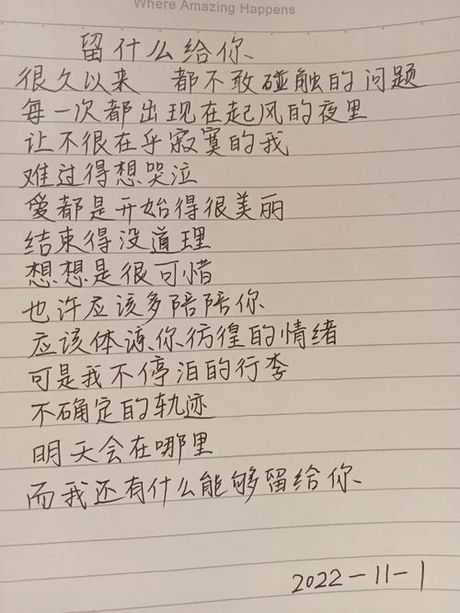 Where Amazing Happens
留什么给你
很久以来 都不敢碰触的问题
每一次都出现在起风的夜里
让不很在乎寂寞的我
难过得想哭泣
爱都是开始得很美丽
结束得没道理
想想是很可惜
也许应该多陪陪你
应该体谅你彷徨的情绪
可是我不停泊的行李
不确定的轨迹
明天会在哪里
而我还有什么能够留给你
2022-11-1